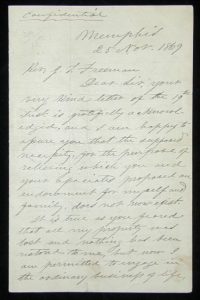 Confidential
Memphis
25 Nov. 1869
Rev. J. N. Freeman
Dear Sir, your
very kind letter of the 19th
Inst is gratefully acknowl
edged, and I am happy to
assure you that the supposed
necessity, for the purpose of
relieving which you and
your associates proposed an
endowment for myself and
family, does not now exist.
It is true as you feared
that all my property was
lost and nothing has been
restored to me, but now I
am permitted to engage in
the ordinary business of life